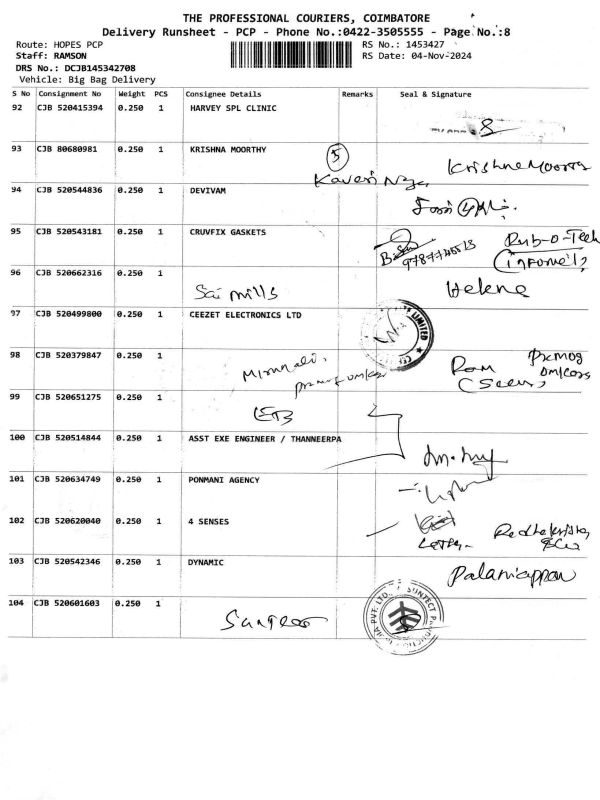 THE PROFESSIONAL COURIERS, COIMBATORE
Delivery Runsheet - PCP - Phone No.:0422-3505555 - Page No.:8
Route: HOPES PCP RS No.: 1453427
Staff: RAMSON RS Date: 04-Nov-2024
DRS No.: DCJB145342708
Vehicle: Big Bag Delivery
S No Consignment No Weight PCS Consignee Details Remarks Seal & Signature
92 CJB 520415394 0.250 1 HARVEY SPL CLINIC
93 CJB 80680981 0.250 1 KRISHNA MOORTHY 5
Kaveri Krishna Moorthy
94 CJB 520544836 0.250 1 DEVIVAM
95 CJB 520543181 0.250 1 CRUVFIX GASKETS Rub-O-Tech
96 CJB 520662316 0.250 1
Sai mills Helene
97 CJB 520499800 0.250 1 CEEZET ELECTRONICS LTD
LIMITED
98 CJB 520379847 0.250 1
Ram
99 CJB 520651275 0.250 1
EB
100 CJB 520514844 0.250 1 ASST EXE ENGINEER / THANNEERPA
101 CJB 520634749 0.250 1 PONMANI AGENCY
102 CJB 520620040 0.250 1 4 SENSES
103 CJB 520542346 0.250 1 DYNAMIC
Palaniappan
104 CJB 520601603 0.250 1